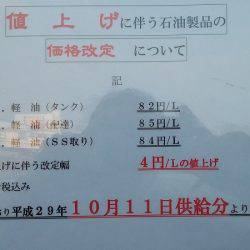 値上げに伴う石油製品の
価格改定について
記
．軽　油（タンク）　８２円/L
．軽　油（配達）　８５円/L
．軽　油（ＳＳ取り）　８４円/L
げに伴う改定幅　４円/Lの値上げ
税込み
り平成２９年１０月１１日供給分より